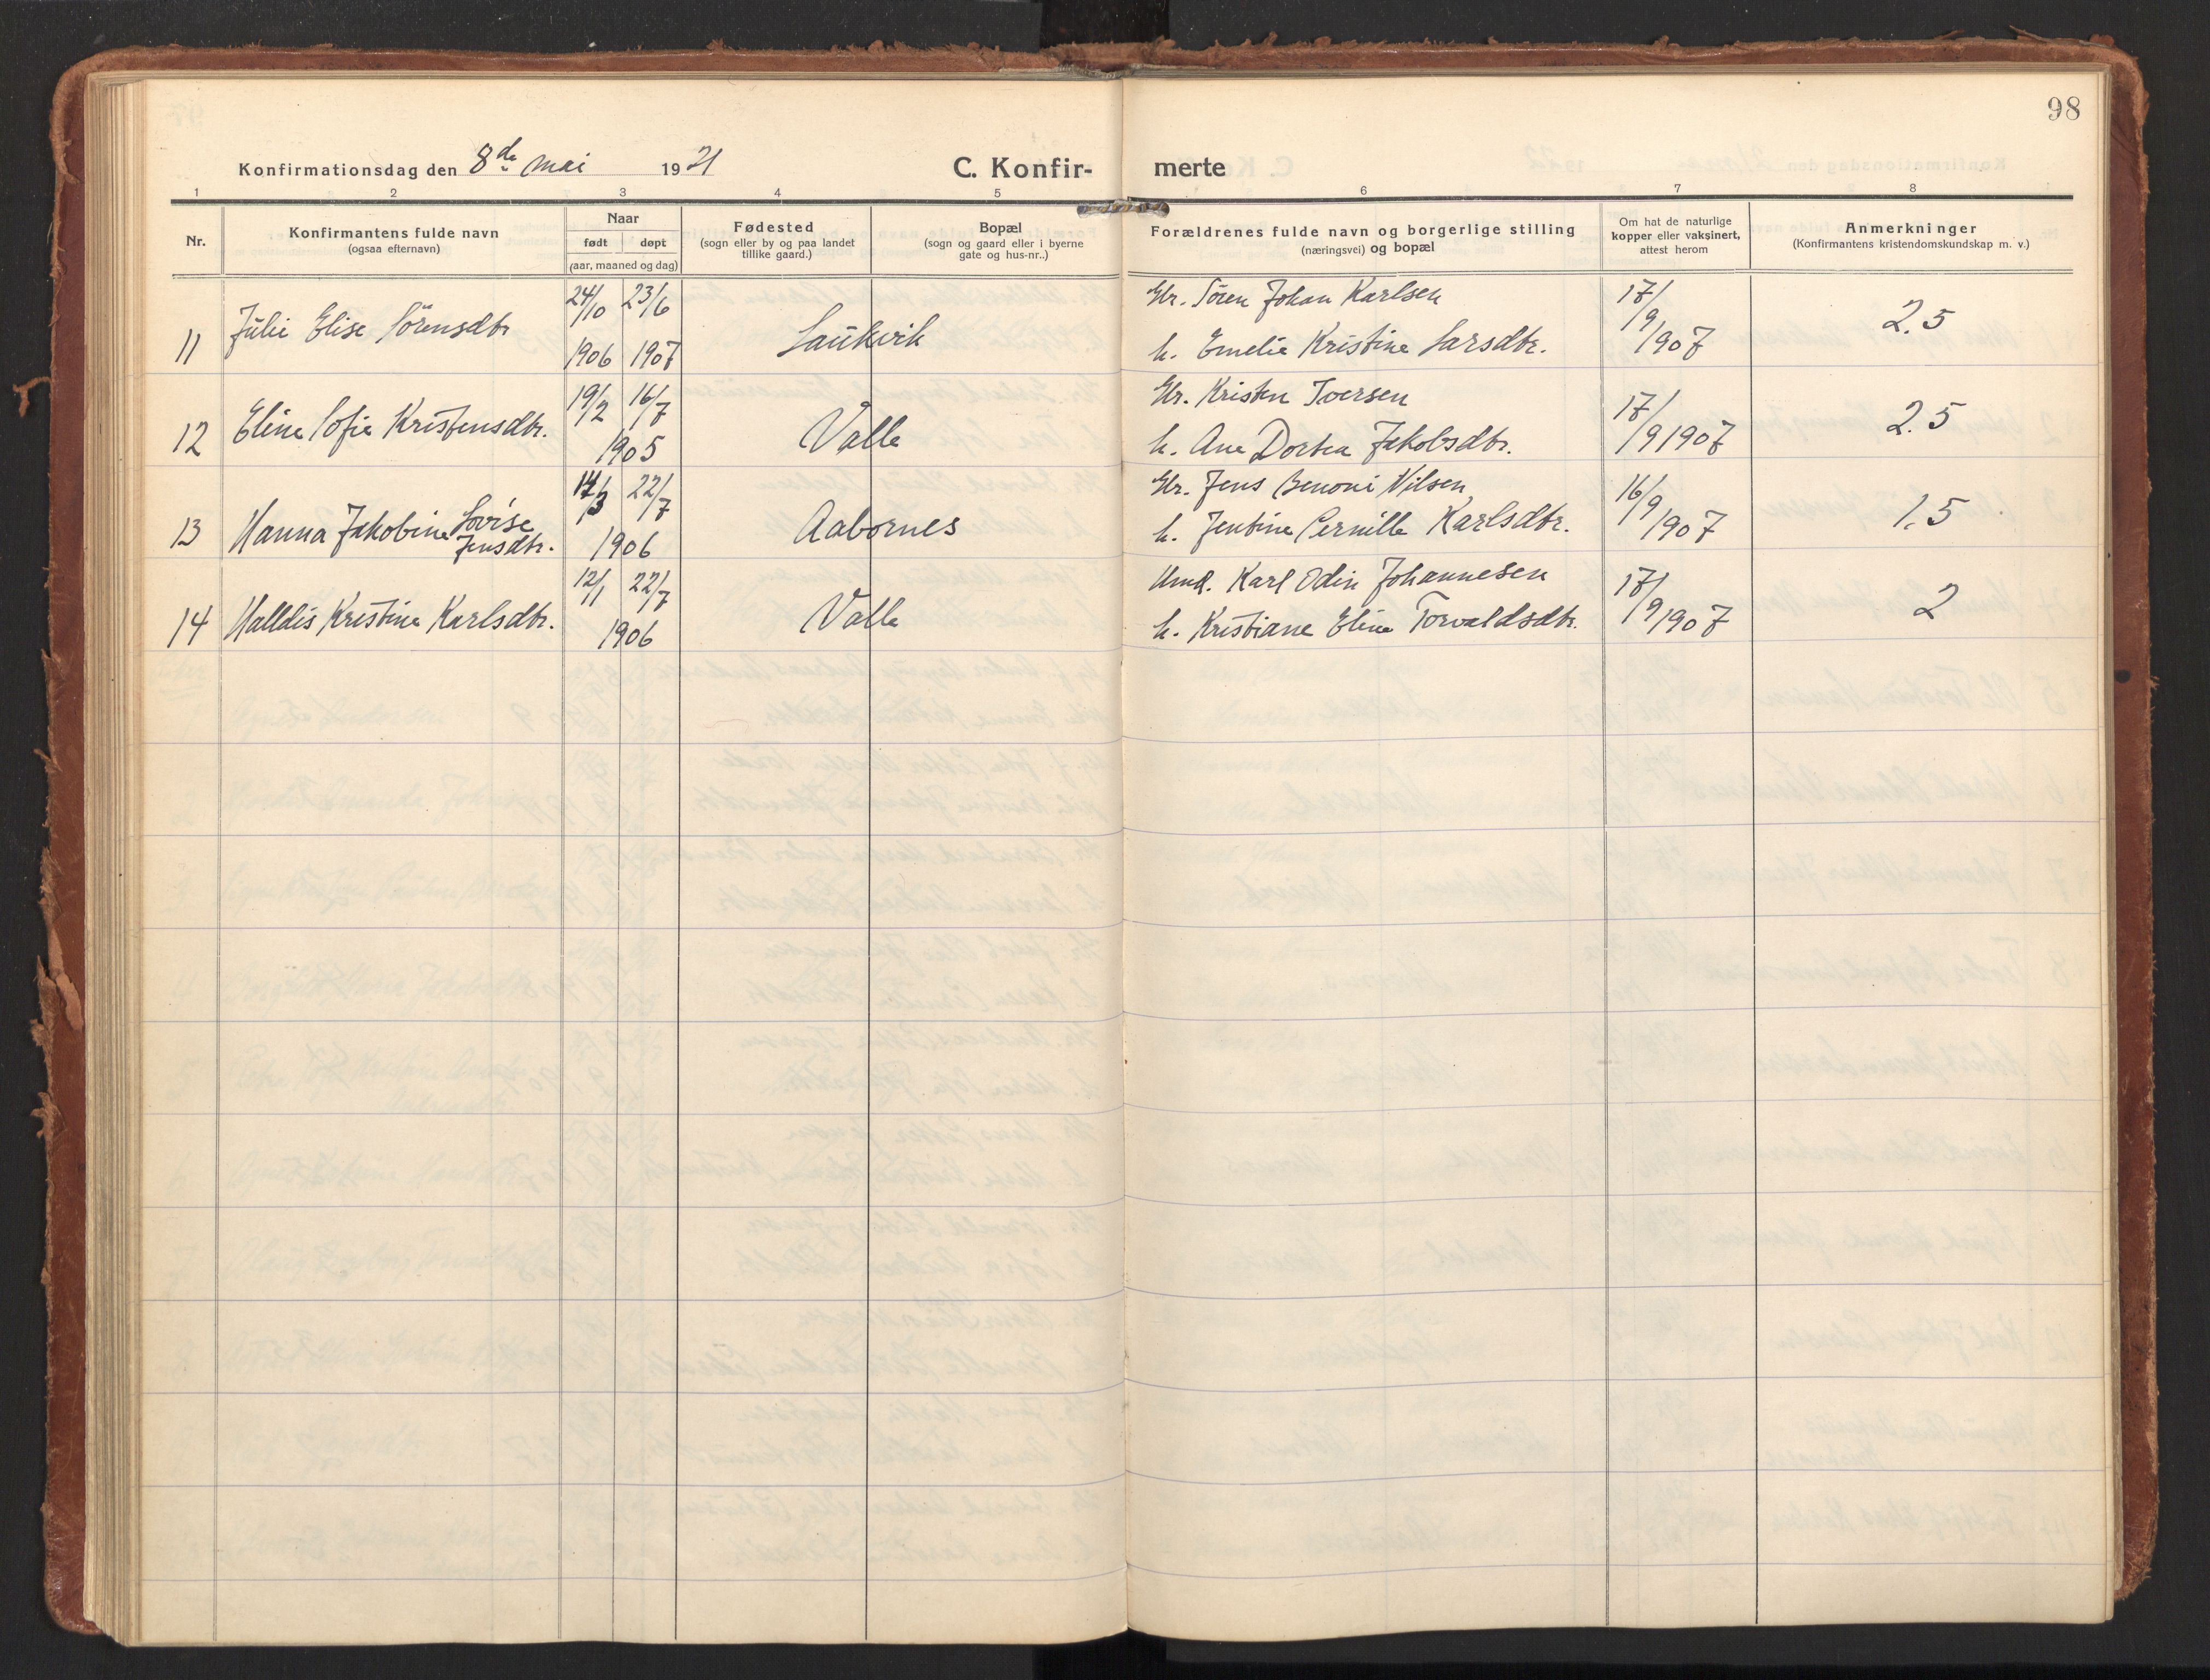 98
Konfirmationsdag den 8de mai 1921
C. Konfir-
merte
1 2 3 4 5 6 7 8
Nr.
Konfirmantens fulde navn
(ogsaa efternavn)
Naar
født døpt
(aar, maaned og dag)
Fødested
(sogn eller by og paa landet
tillike gaard.)
Bopæl
(sogn og gaard eller i byerne
gate og hus-nr..)
Forældrenes fulde navn og borgerlige stilling
(næringsvei) og bopæl
Om hat de naturlige
kopper eller vaksinert,
attest herom
Anmerkninger
(Konfirmantens kristendomskundskap m. v.)
11 Julie Elise Sörensdtr 24/10 1906 23/6 1907 Laukvik
Gbr. Sören Johan Karlsen
h. Emelie Kristine Larsdtr.
17/9 1907
2.5
12 Eline Sofie Kristensdtr. 19/2 16/7 1905 Valle
Gbr. Kristen Iversen
h. Ane Dortea Jakobsdtr.
17/9 1907
2.5
13 Hanna Jakobine Lovise
Jensdtr.
14/3 22/7 1906 Aabornes
Gbr. Jens Benoni Nilsen
h. Jentine Pernille Karlsdtr.
16/9 1907
1.5
14 Halldis Kristine Karlsdtr. 12/1 22/7 1906 Valle
Karl Odin Johannesen
h. Kristiane Eline Torvaldsdtr.
17/9 1907
2